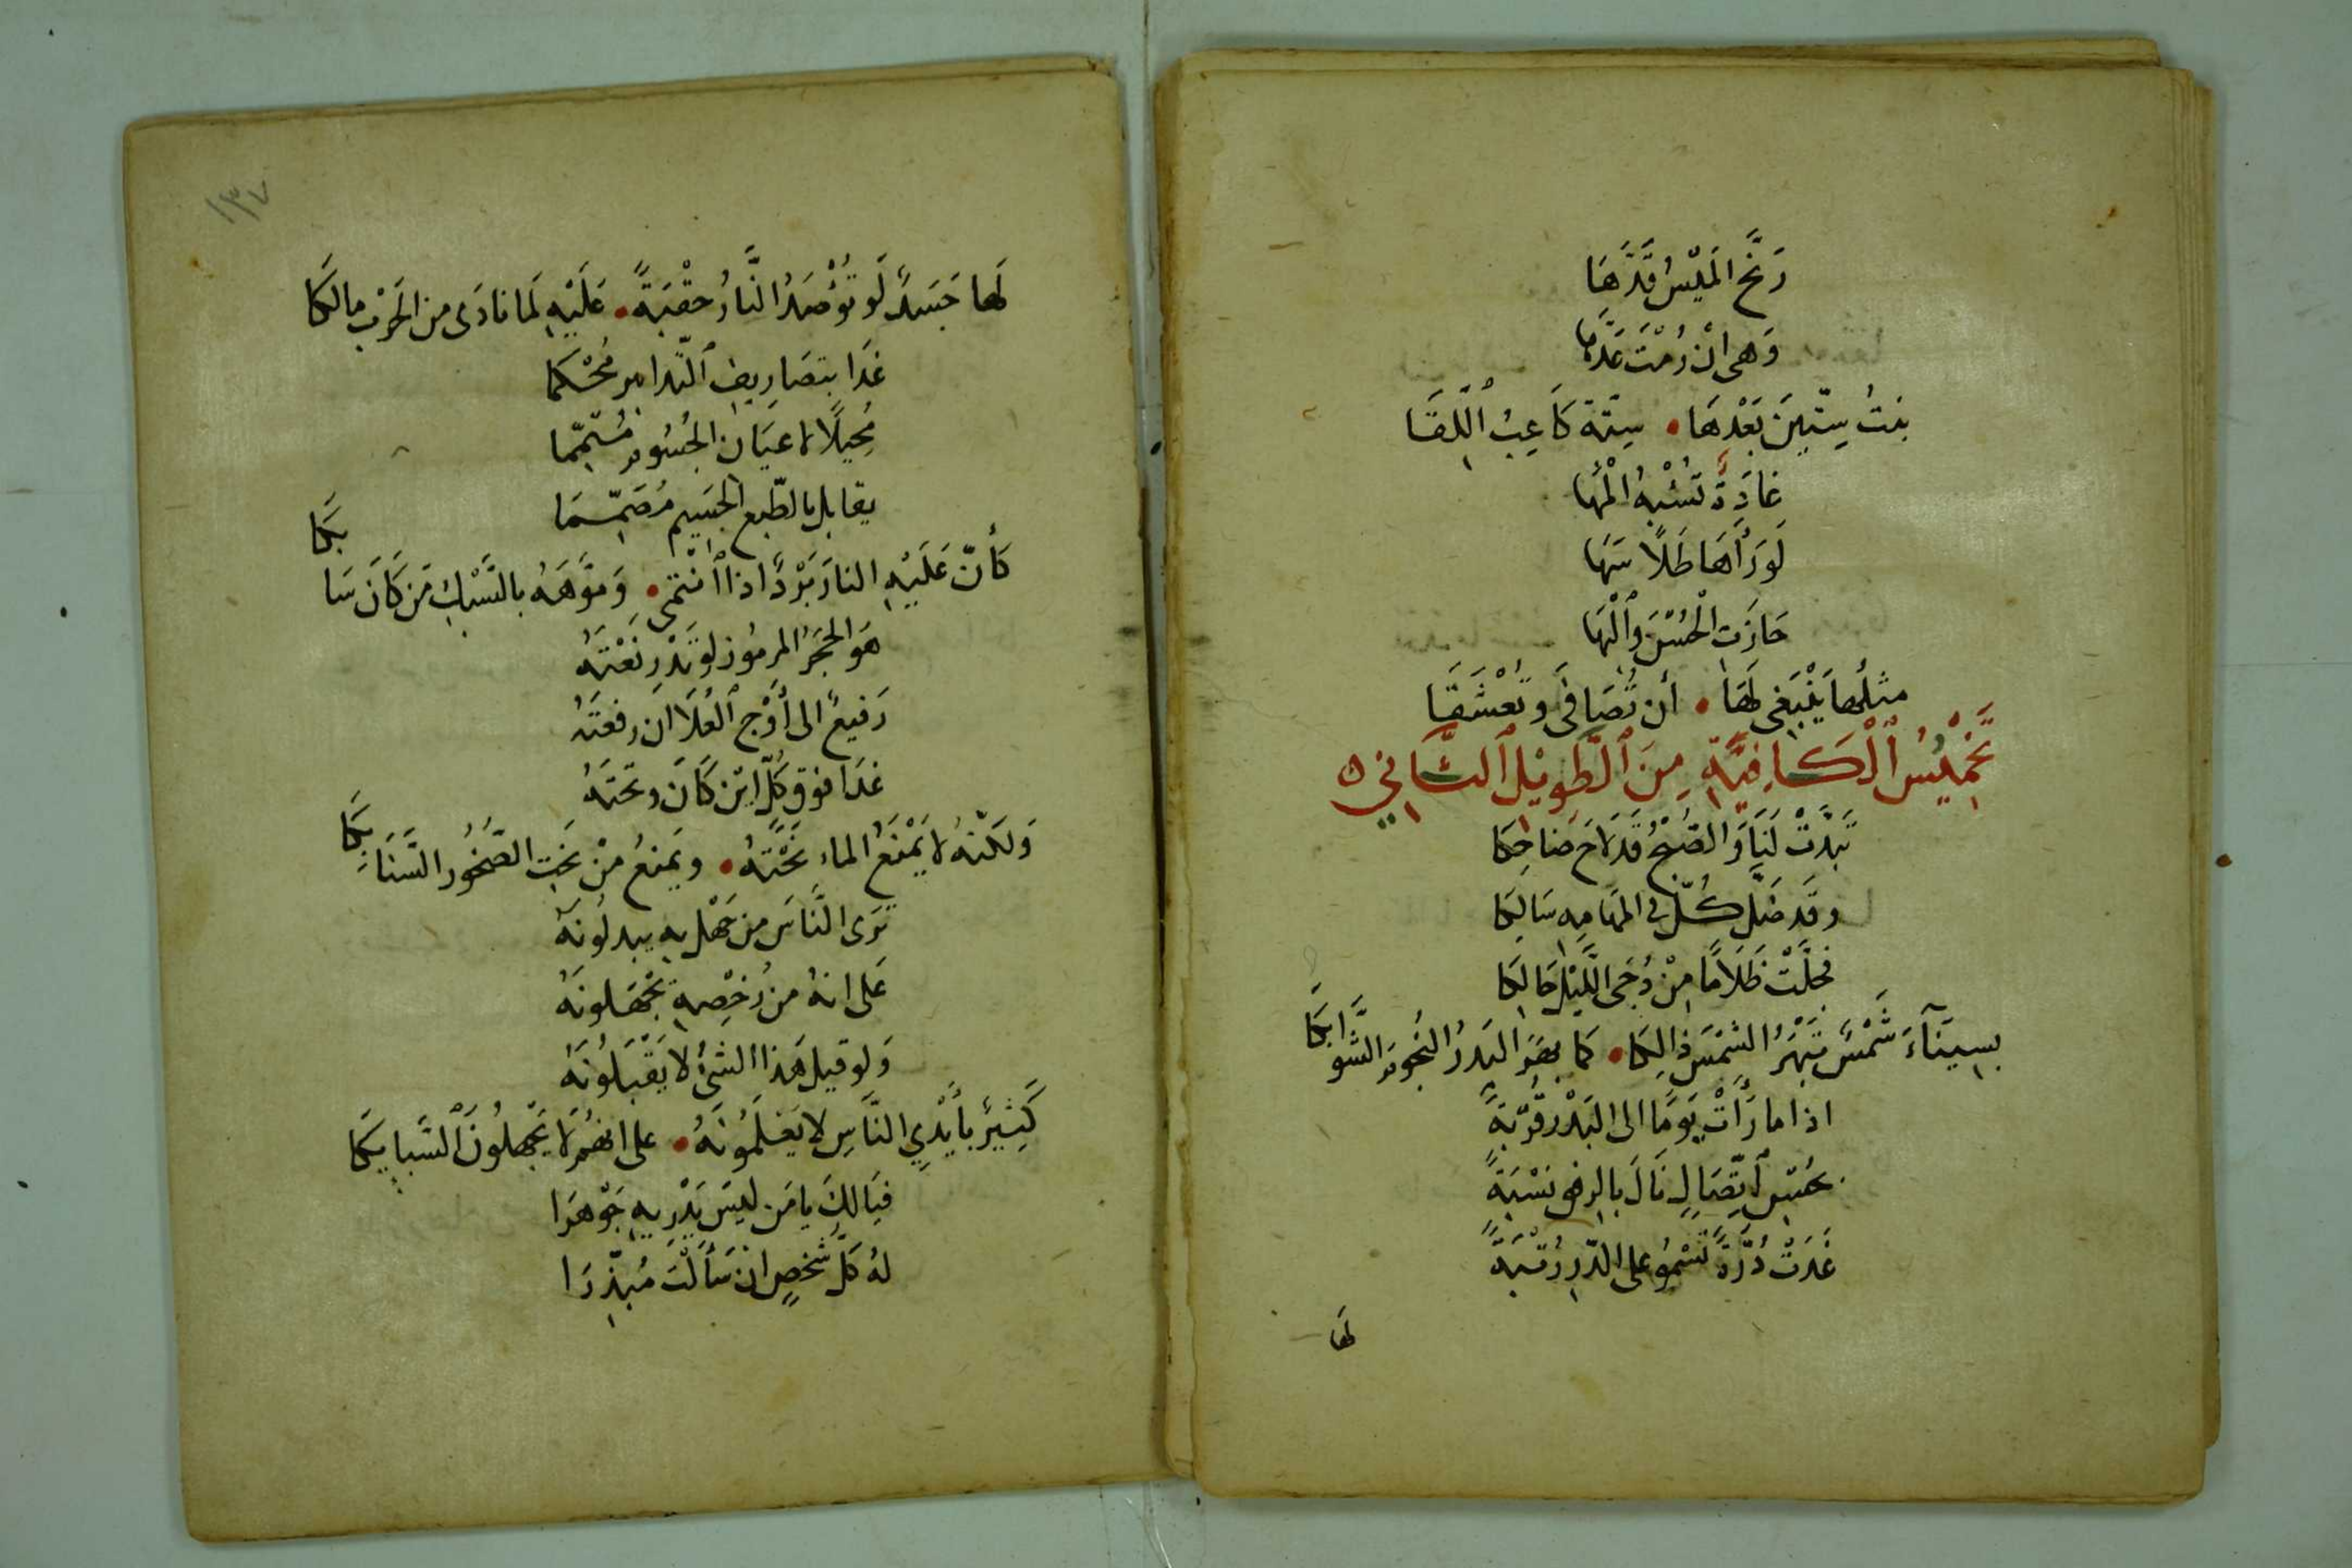 رَنَّحَ المَيْسُ قَدَّهَا
وَهى اِنْ رُمْتَ عَدَّهَا
بنتُ سِتّينَ بَعْدهَا • سِتّة كَاعِبُ ٱللِّقَا
غادَةٌ تُشْبِهُ الْمَهَا
لَو رَأَهَا طَلًا سَهَا
حَازَتِ الْحُسْنَ وَٱلْبَهَا
مثلُها يَنْبَغى لَهَا • أن تُصَافَى وتُعْشَقَا
تَخْمِيْسُ ٱلْكَافِيَّةِ مِنَ ٱلطَّوِيْلِ ٱلثَّانِي ٥
تَبَدَّتْ لَنَا وَالصُّبْحُ قَدْ لَاحَ ضَاحِكَا
وقَد ضَلَّ كُلٌّ فى المَهَامِهِ سَالِكَا
فجلَّتْ ظَلَامًا مِنْ دُجَى اللَّيْلِ حَالِكَا
بِسِينَآءَ شَمْسٌ تَبْهَرُ الشمْسَ ذَالِكَا • كَما بهَرَ البَدرُ النُجومَ الشَّوَابكَا
اذا ما رَأَتْ يَومًا الى البَدْرِ قُرْبَةً
بحُسْنِ ٱتِّصَالٍ نَالَ بالرضى نسْبَةً
غَدَتْ دُرَّةً تَسْمُو على الدّرِ رُتْبَةً
لها
١٣٧
لَها جَسَدٌ لَو تُؤْصَدُ النَّارُ حقْبَةً • عَلَيْهِ لَما نادَى من الحَرْبِ مالكَا
غَدَا بتَصَارِيفِ ٱلتّدابير مُحْكَمَا
مُحِيلًا لاعيَانِ الجُسُومِ مُتَمِّمَا
يقابل بالطّبعِ الجَسِيمِ مُصَمِّمَا
كأنّ عَلَيْهِ النارَ بَرْدًا اذا ٱنْتمَى • وَمَوَّهَهُ بالسَّبْكِ مَن كَانَ سَابكَا
هَو الحَجَرُ المرمُوز لو تَدْرِ نَعْتَهُ
رَفيعٌ الى أَوْجِ ٱلعُلَا ان رفعتَهُ
غدَا فوق كُلّ ايْن كَانَ وتَحتَهُ
وَلكنّهُ لا يَمْنَعُ الماء نَحْتَهُ • ويَمنعُ مِنْ نَحِتِ الصُّخُور السَّنَابِكَا
تَرى النَّاسَ من جَهْلٍ بهِ يبدلُونَهُ
عَلى انهُ من رُخْصِهِ يجْهَلونَهُ
وَلو قيل هَذا ٱلشئُ لا يَقْبَلُونَهُ
كَثِيرٌ بأَيْدِي النَّاسِ لا يَعْلَمُونَهُ • على انهُم لا يَجْهلُونَ ٱلسَّبايكَا
فيَا لكَ يا مَن ليسَ يَدْرِيهِ جَوْهَرَا
لهُ كلُّ شَخصٍ ان سَأَلْتَ مُبذِّرَا